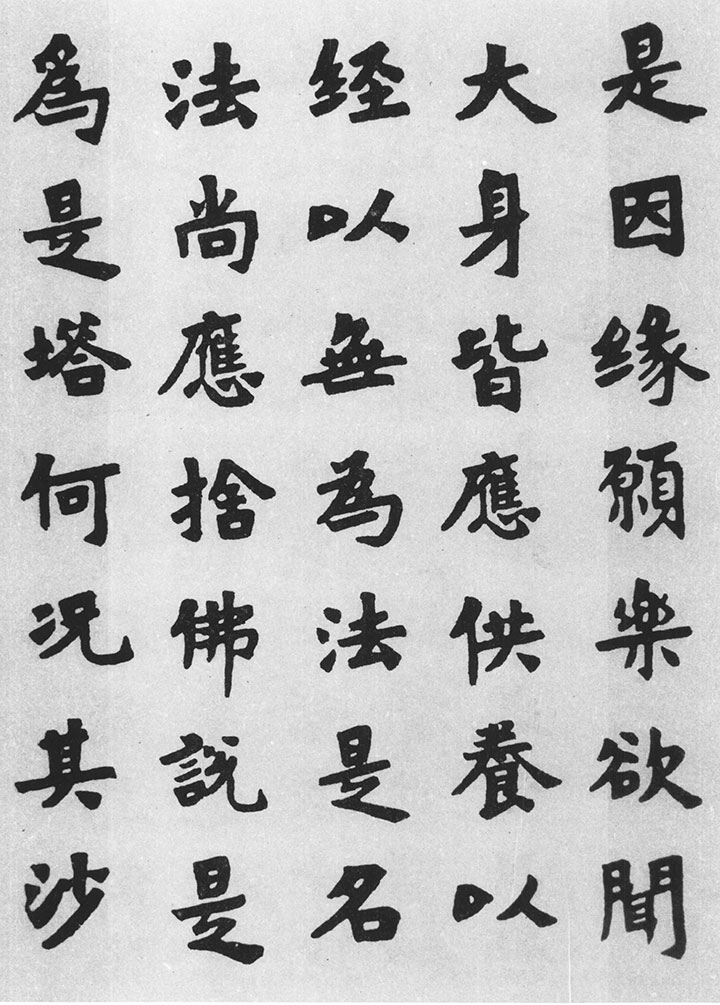 是因緣願樂欲聞
大身皆應供養以
経以無為法是名
法尚應捨佛說是
爲是塔何況其沙